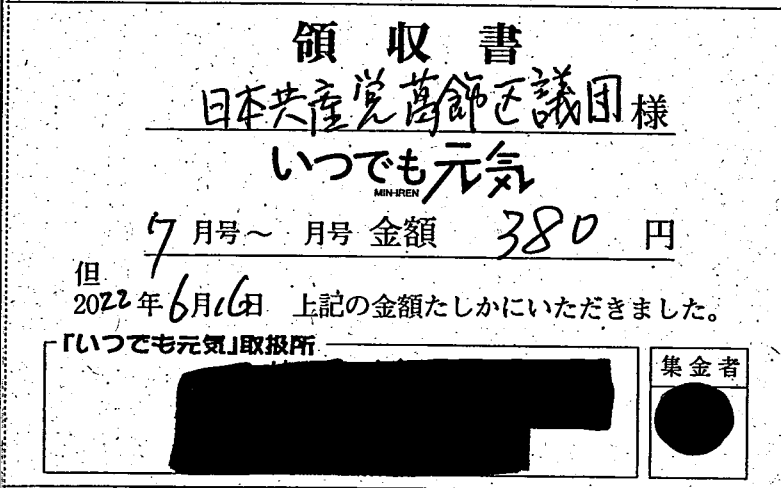 領収書
日本共産党葛飾区議団様
いつでも元気
MIN-IREN
7月号〜 月号 金額 380円
但
2022年6月16日 上記の金額たしかにいただきました。
「いつでも元気」取扱所
集金者